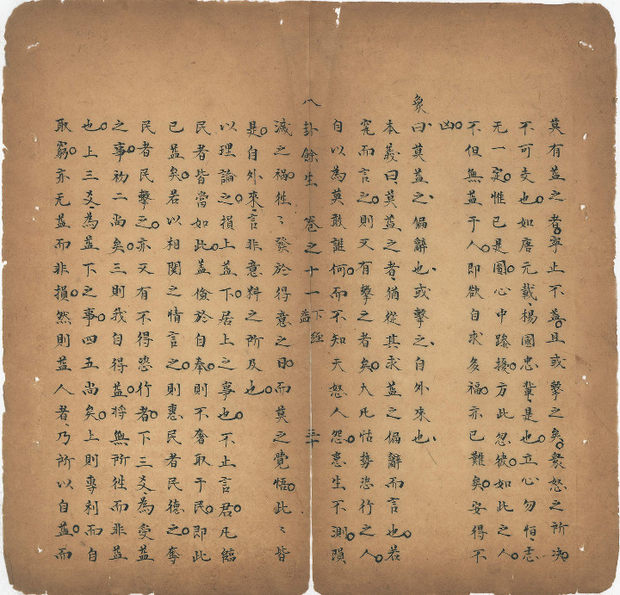 莫有益之者寧止不益且或擊之矣衆怒之所決
不可交也如唐元載楊國忠輩是也立心勿恒志
无一定惟已是圖心中躁擾方此忽彼如此之人
不但無益于人即欲自求多福亦已難矣安得不
凶
象曰莫益之偏辭也或擊之自外來也
本義曰莫益之者猶從其求益之偏辭而言也若
究而言之則又有擊之者矣大凡怙勢恣行之人
自以為莫敢誰何而不知天怒人怨患生不測隕
八卦餘生 卷之十一 下経 益 三十
滅之禍往〻發於得意之日而莫之覺悟此〻皆
是自外來言非意料之所及也
以理論之損上益下居上之事也不止言君凡臨
民者皆當如此蓋儉於自奉則不奪取于民即此
已益矣若以相関之情言之則惠民者民德之奪
民者民擊之亦又有不得恣行者下三爻為受益
之事初二尚矣三則我自得益将無所往而非益
也上三爻為益下之事四五尚矣上則專利而自
取窮亦无益而非損然則益人者乃所以自益而